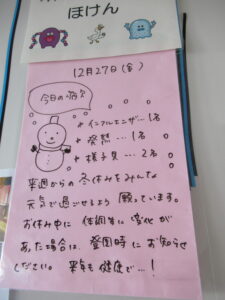 ほけん
12月27日(金)
今日の病欠
* インフルエンザ…1名
* 発熱…1名
* 様子見…2名
来週からの冬休みをみんな
元気で過ごせるよう 願っています。
お休み中に 体調に変化が
あった場合は、登園時に お知らせ
ください。 来年も健康で…!